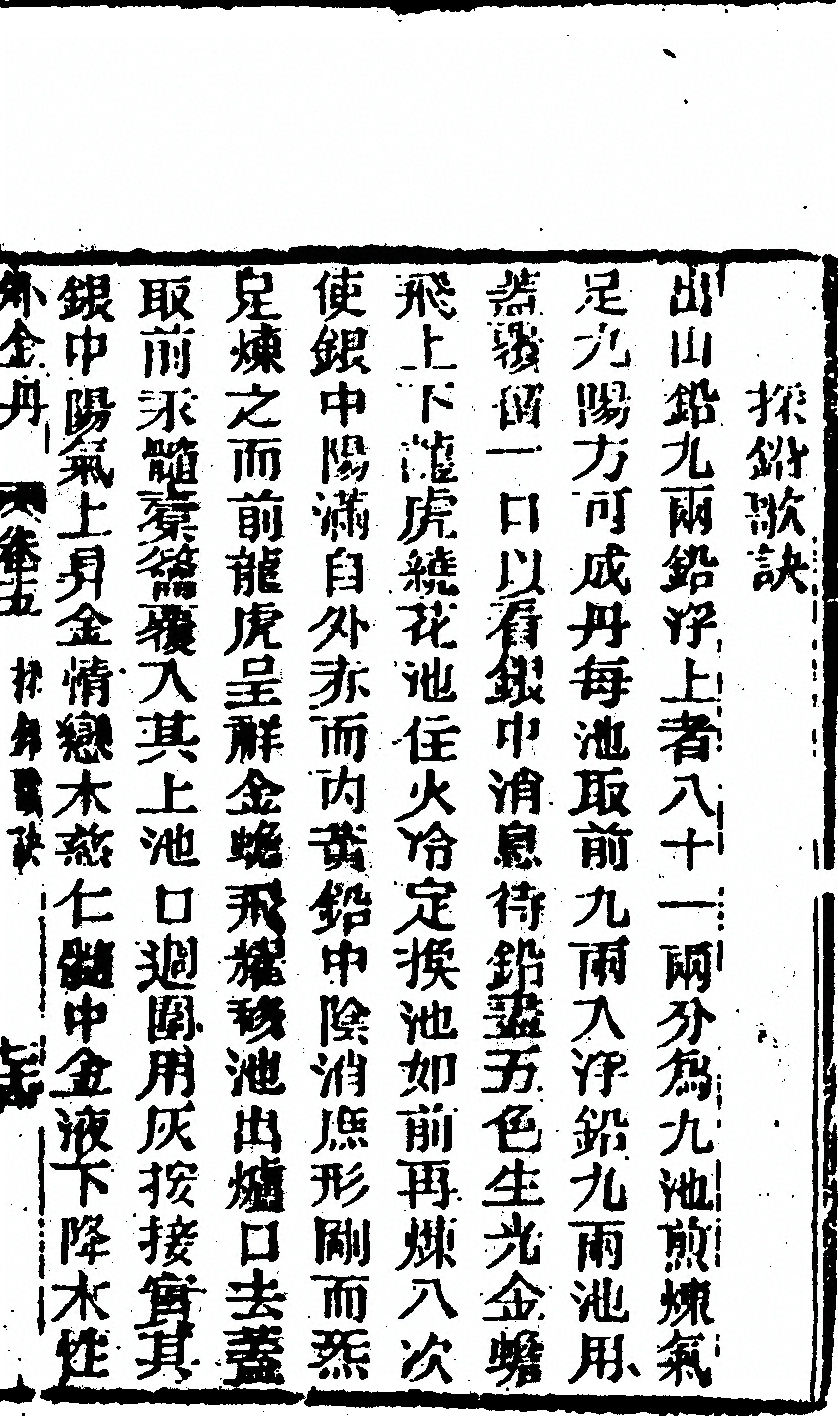 採鉛歌訣
出山鉛九兩鉛浮上者八十一兩分為九池煎煉氣
足九陽方可成丹每池取前九兩入淨鉛九兩池用
蓋覆留一口以看銀中消息待鉛盡五色生光金蟾
飛上下龍虎繞花池住火冷定換池如前再煉八次
使銀中陽滿白外赤而內黃鉛中陰消庶形剛而炁
足煉之而前龍虎呈祥金蟾飛耀移池出爐口去蓋
取前汞髓橐籥覆入其上池口週圍用灰按接實其
銀中陽氣上昇金情戀木慈仁髓中金液下降木性
外金丹 卷五 採鉛歌訣